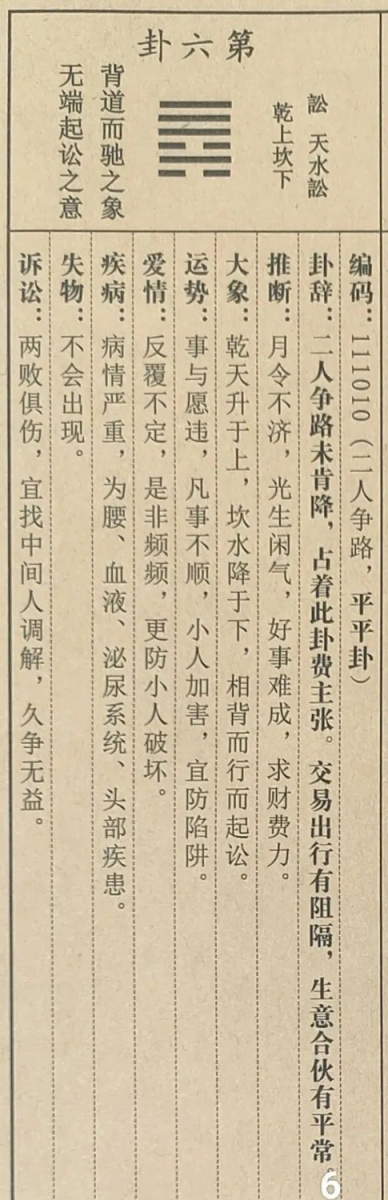 第六卦
訟 天水訟
乾上坎下
背道而驰之象
无端起讼之意
编码：111010（二人争路，平平卦）
卦辞：二人争路未肯降，占着此卦费主张。交易出行有阻隔，生意合伙有平常。
推断：月令不济，光生闲气，好事难成，求财费力。
大象：乾天升于上，坎水降于下，相背而行而起讼。
运势：事与愿违，凡事不顺，小人加害，宜防陷阱。
爱情：反覆不定，是非频频，更防小人破坏。
疾病：病情严重，为腰、血液、泌尿系统、头部疾患。
失物：不会出现。
诉讼：两败俱伤，宜找中间人调解，久争无益。
6